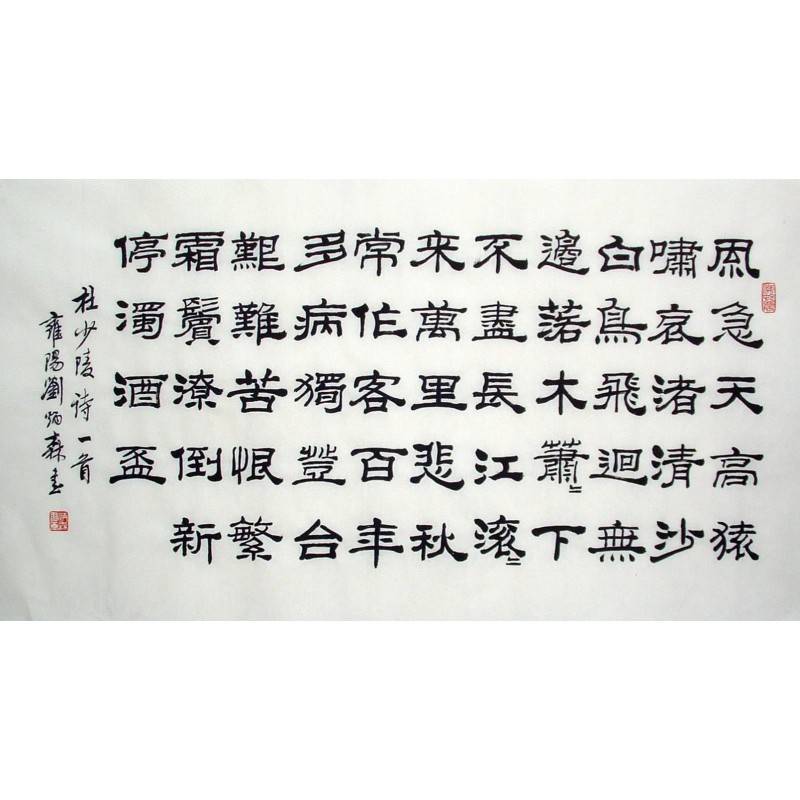 風急天高猿
嘯哀渚清沙
白鳥飛迴無
邊落木蕭〻下
不盡長江滾〻
来萬里悲秋
常作客百年
多病獨登台
艱難苦恨繁
霜鬢潦倒新
停濁酒盃
杜少陵诗一首
雍陽劉炳森書